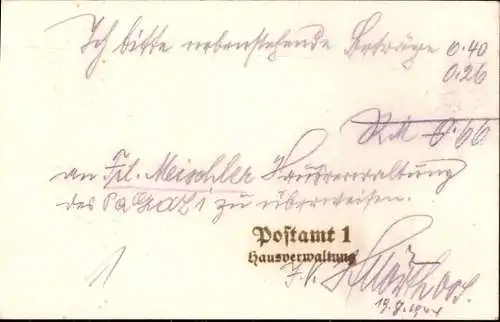 Ich bitte nebenstehende Beträge 0.40
0.26
RM 0.66
an Frl. Meischler Hausverwaltung
des PA Graz 1 zu überweisen.
Postamt 1
Hausverwaltung
I.V.
1944